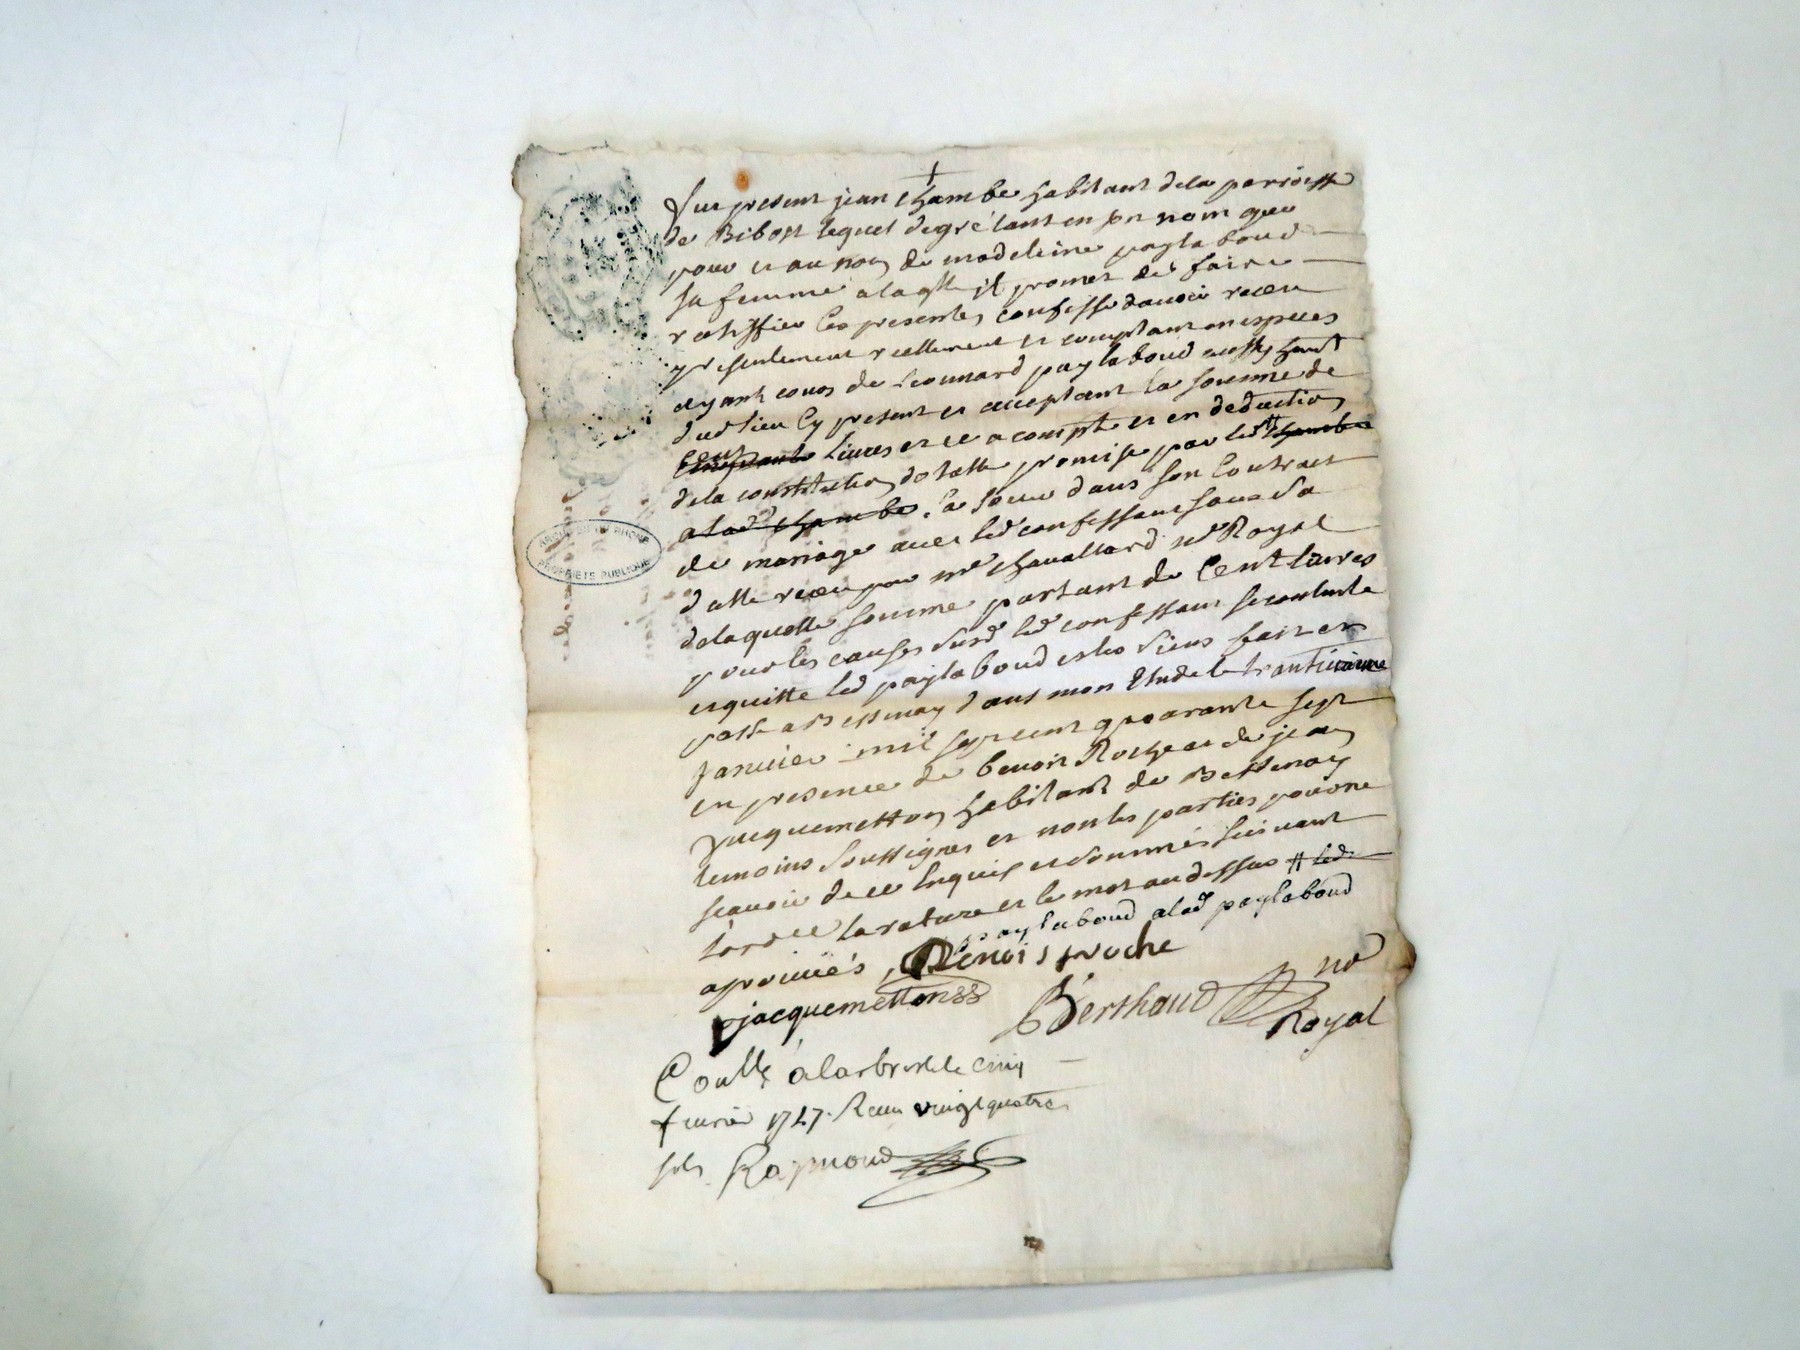 fut present jean chambe habitant dela parroisse
de Bibost lequel degré tant en son nom que
pour et au nom de madeleine paylaboud
sa femme a laqlle il promet de faire
ratiffier ces presentes confesse davoir receu
presentement reellement et comptant en especes
ayant cours de Leonnard paylaboud
dud lieu cy present et acceptant la somme de
cent livres et ce a compte et en deduction
dela constitution dotalle promise par led # chambe
a lad chambe sa soeur dans son contract
de mariage avec led confessant sous sa
datte receu par me chavallard nre Royal
delaquelle somme partant de cent livres
pour les causes susd led confessant se contente
et quitte led paylaboud et les siens fait et
passé a Bessenay dans mon Etude le trantieme
janvier mil sept cent quarante sept
en presence de benoit Roche et de jean
jacquemetton habitant de Bessenay
temoins soussignes et non les parties pour ne
scavoir de ce enquis et sommés suivant
lord ce la rature et le mot au dessus # led
paylaboud a lad paylaboud
aprouvés Benois roche
jacquemetton
Berthaud
no
Royal
Conllé a larbresle le cinq
fevrier 1747. Receu vingt quatre
sols Raymond
ARCHIVES DU RHONE
PROPRIETE PUBLIQUE